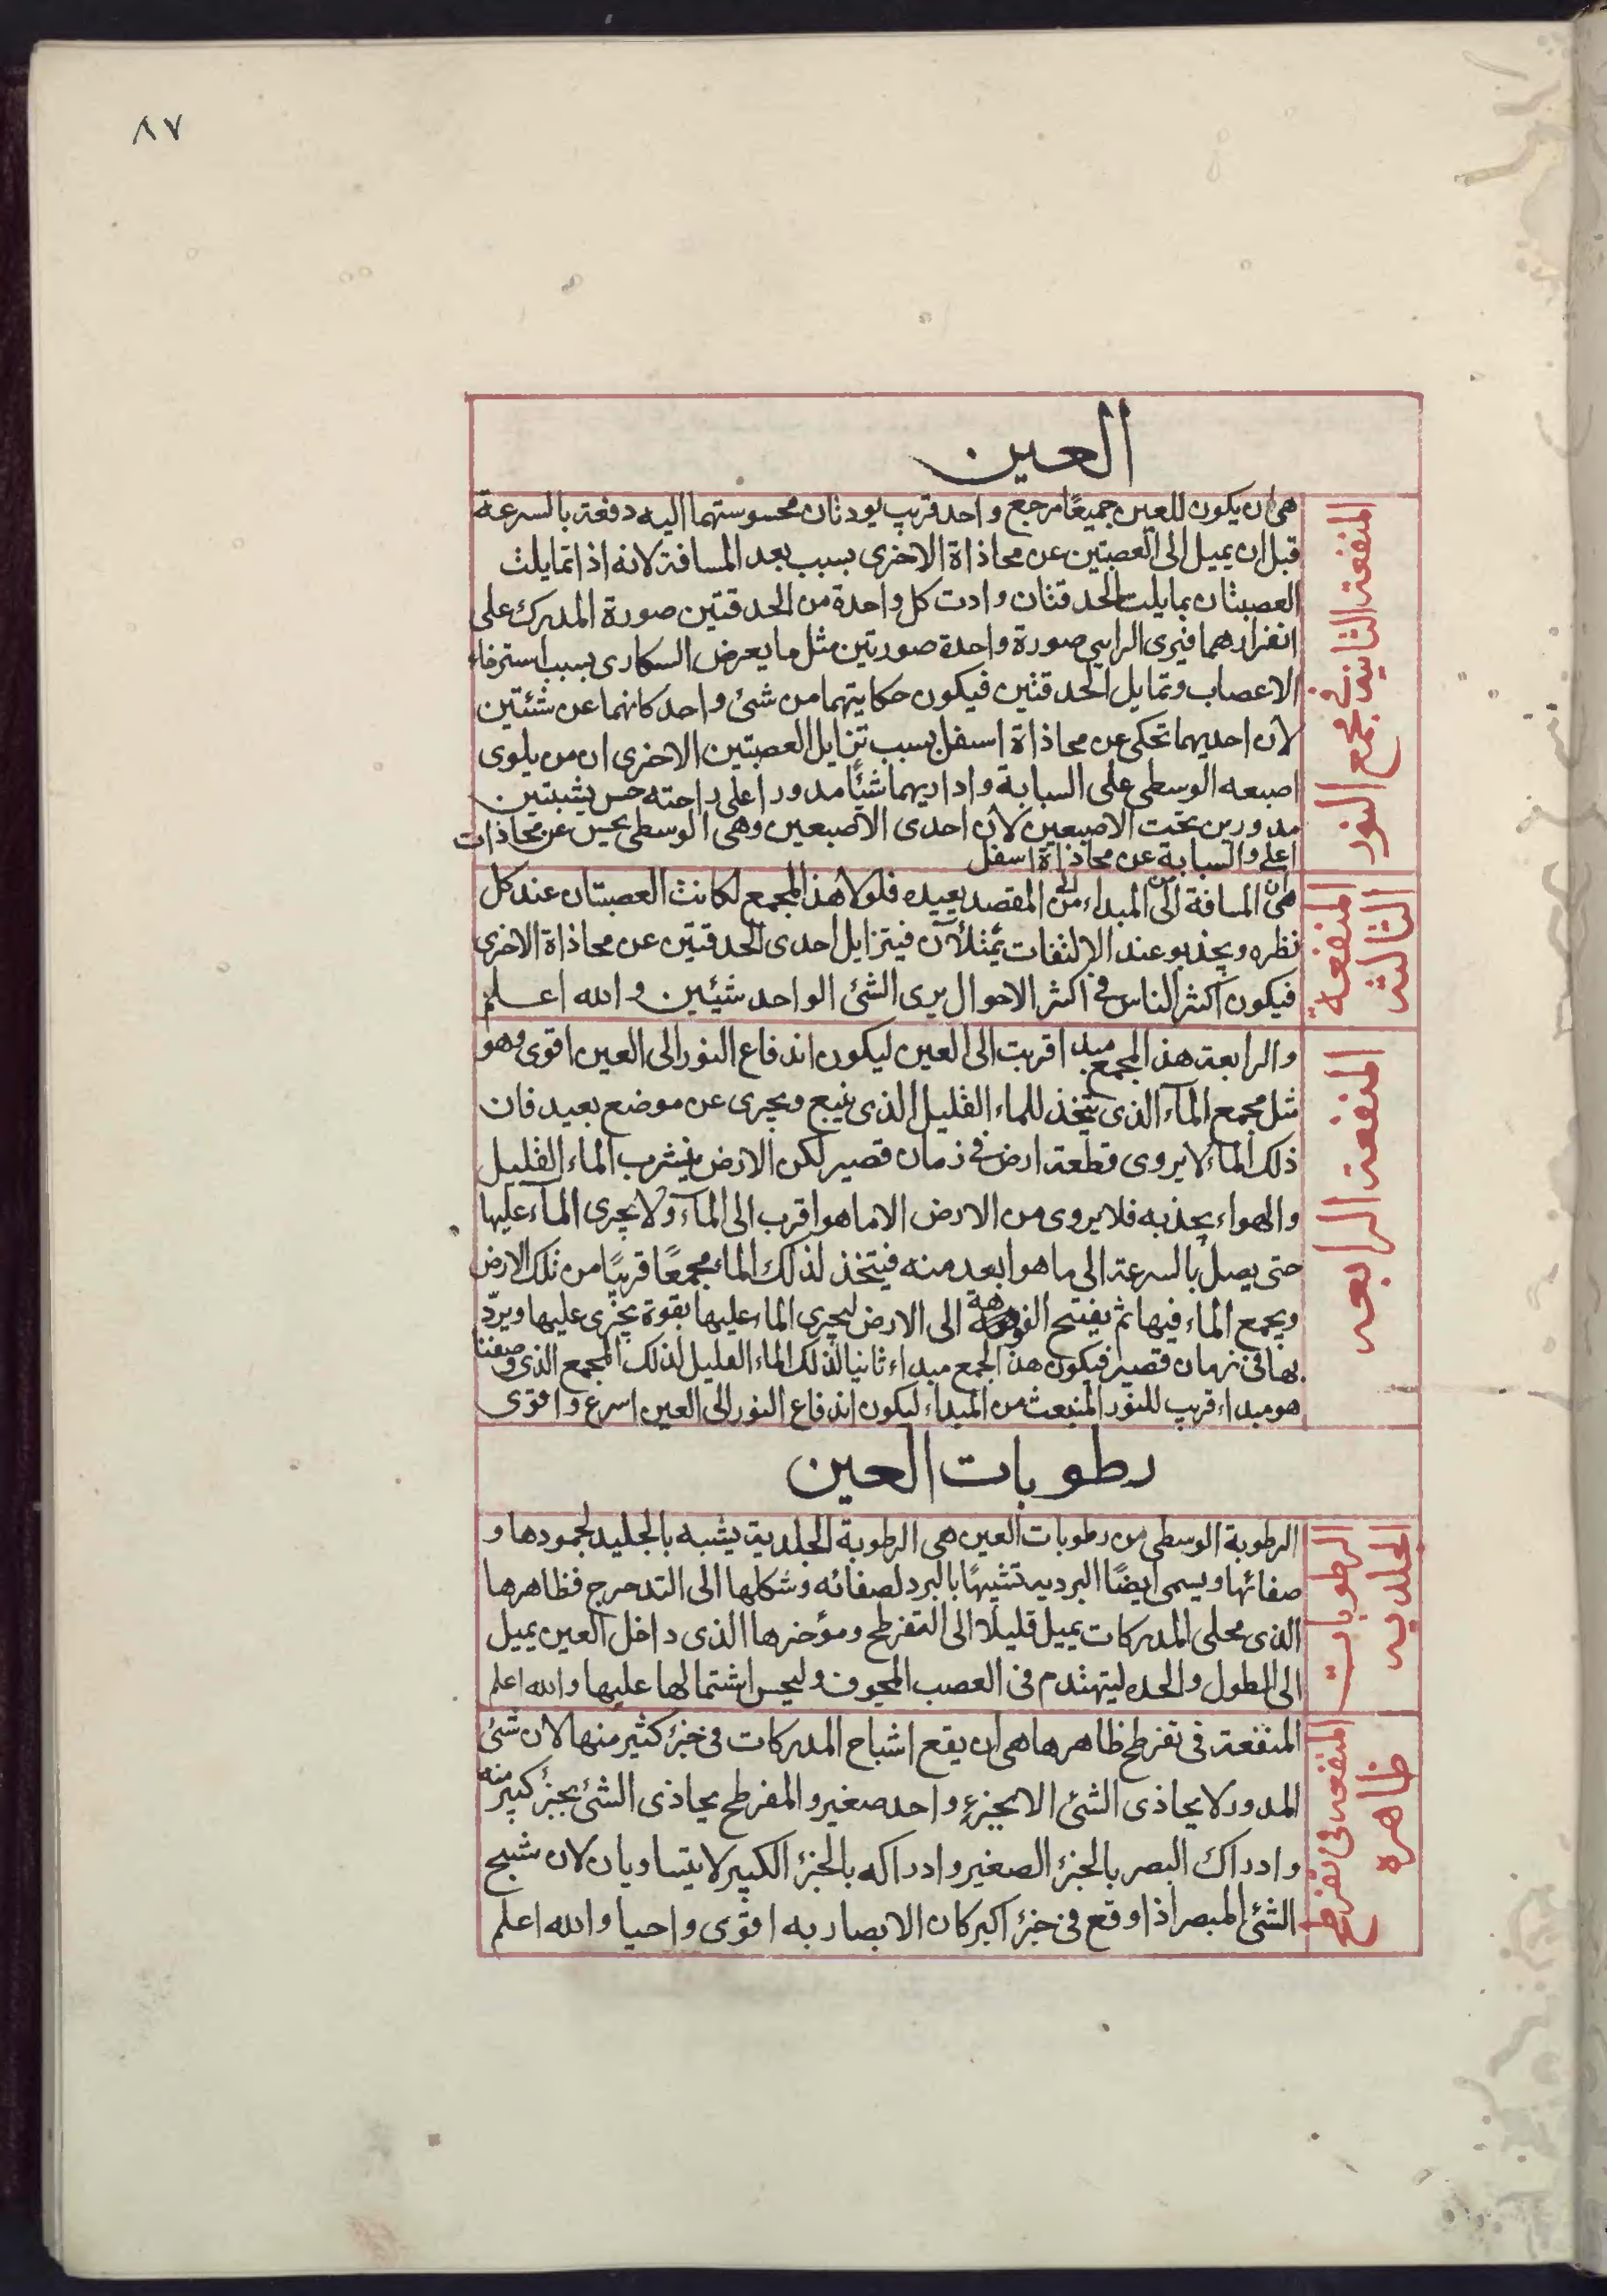 ٨٧
العين
المنفعة الثانية في مجمع النور
هي ان يكون للعين جميعًا مرجع واحد قريب يودتان محسوستهما اليه دفعة بالسرعة
قبل ان يميل الى العصبتين عن محاذاة الاخرى بسبب بعد المسافة لانه اذا تمايلت
العصبتان بمايلت الحدقتان وادت كل واحدة من الحدقتين صورة المدرك على
انفرادهما فيرى الرايي صورة واحدة صورتين مثل ما يعرض السكارى بسبب استرخاء
الاعصاب وتمايل الحدقتين فيكون حكايتهما من شئ واحد كانهما عن شئتين
لان احديهما تحكى عن محاذاة اسفل بسبب تزايل العصبتين الاخرى ان من يلوى
اصبعه الوسطى على السبابة واداريهما شئًا مدورا على راحته حس بشيتين
مدورين تحت الاصبعين لان احدى الاصبعين وهى الوسطى يحس عن محاذات
اعلى والسبابة عن محاذاة اسفل
المنفعة الثالثة
هى ان المسافة من المبداء الى المقصد بعيده فلولا هذا المجمع لكانت العصبتان عند كل
نظره ويجذبو عند الالتفات يمثلان فيتزايل احدى الحدقتين عن محاذاة الاخرى
فيكون اكثر الناس في اكثر الاحوال يرى الشئ الواحد شيئين والله اعلم
المنفعة الرابعه
والرابعة هذا المجمع مبدا قربت الى العين ليكون اندفاع النور الى العين اقوى وهو
مثل مجمع المآء الذى يتخذ للماء القليل الذى ينبع ويجرى عن موضع بعيد فان
ذلك المآء لا يروى قطعة ارض في زمان قصير لكن الارض ينشرب الماء القليل
والهواء يجذبه فلا يروى من الارض الا ما هو اقرب الى المآء ولا يجرى المآء عليها
حتى يصل بالسرعة الى ما هو ابعد منه فيتخذ لذلك الماء مجمعًا قريبًا من تلك الارض
ويجمع الماء فيها ثم يفتح الفوهة الى الارض ليجرى الماء عليها بقوة يجزى عليها ويردّ
بها فى زمان قصير فيكون هذا الجمع مبداء ثانيا لذلك الماء القليل لذلك المجمع الذى وصفنا
هو مبداء قريب للنور المنبعث من المبداء ليكون اندفاع النور الى العين اسرع واقوى
رطوبات العين
الرطوبات الجلديه
الرطوبة الوسطى من رطوبات العين هى الرطوبة الجلدية يشبه بالجليد لجمودها و
صفائها ويسمى ايضًا البرديه تشبيهًا بالبرد لصفائه وشكلها الى التدحرج فظاهرها
الذى محلى المدركات يميل قليلا الى التفرطح ومؤخرها الذى داخل العين يميل
الى الطول والحده ليتهندم فى العصب المجوف وليحس اشتمالها عليها والله اعلم
المنفعه فى تفرطح ظاهره
المنفعة فى تفرطح ظاهرها هى ان يقع اشباح المدركات فى جزء كثير منها لان شئ
المدور لا يحاذى الشئ الا بجزءٍ واحد صغير والمفرطح يحاذى الشئ بجزء كبير منه
وادراك البصر بالجزء الصغير وادراكه بالجزء الكبير لا يتساويان لان شبح
الشئ المبصر اذا وقع فى جزء اكبر كان الابصار به اقوى واحيا والله اعلم